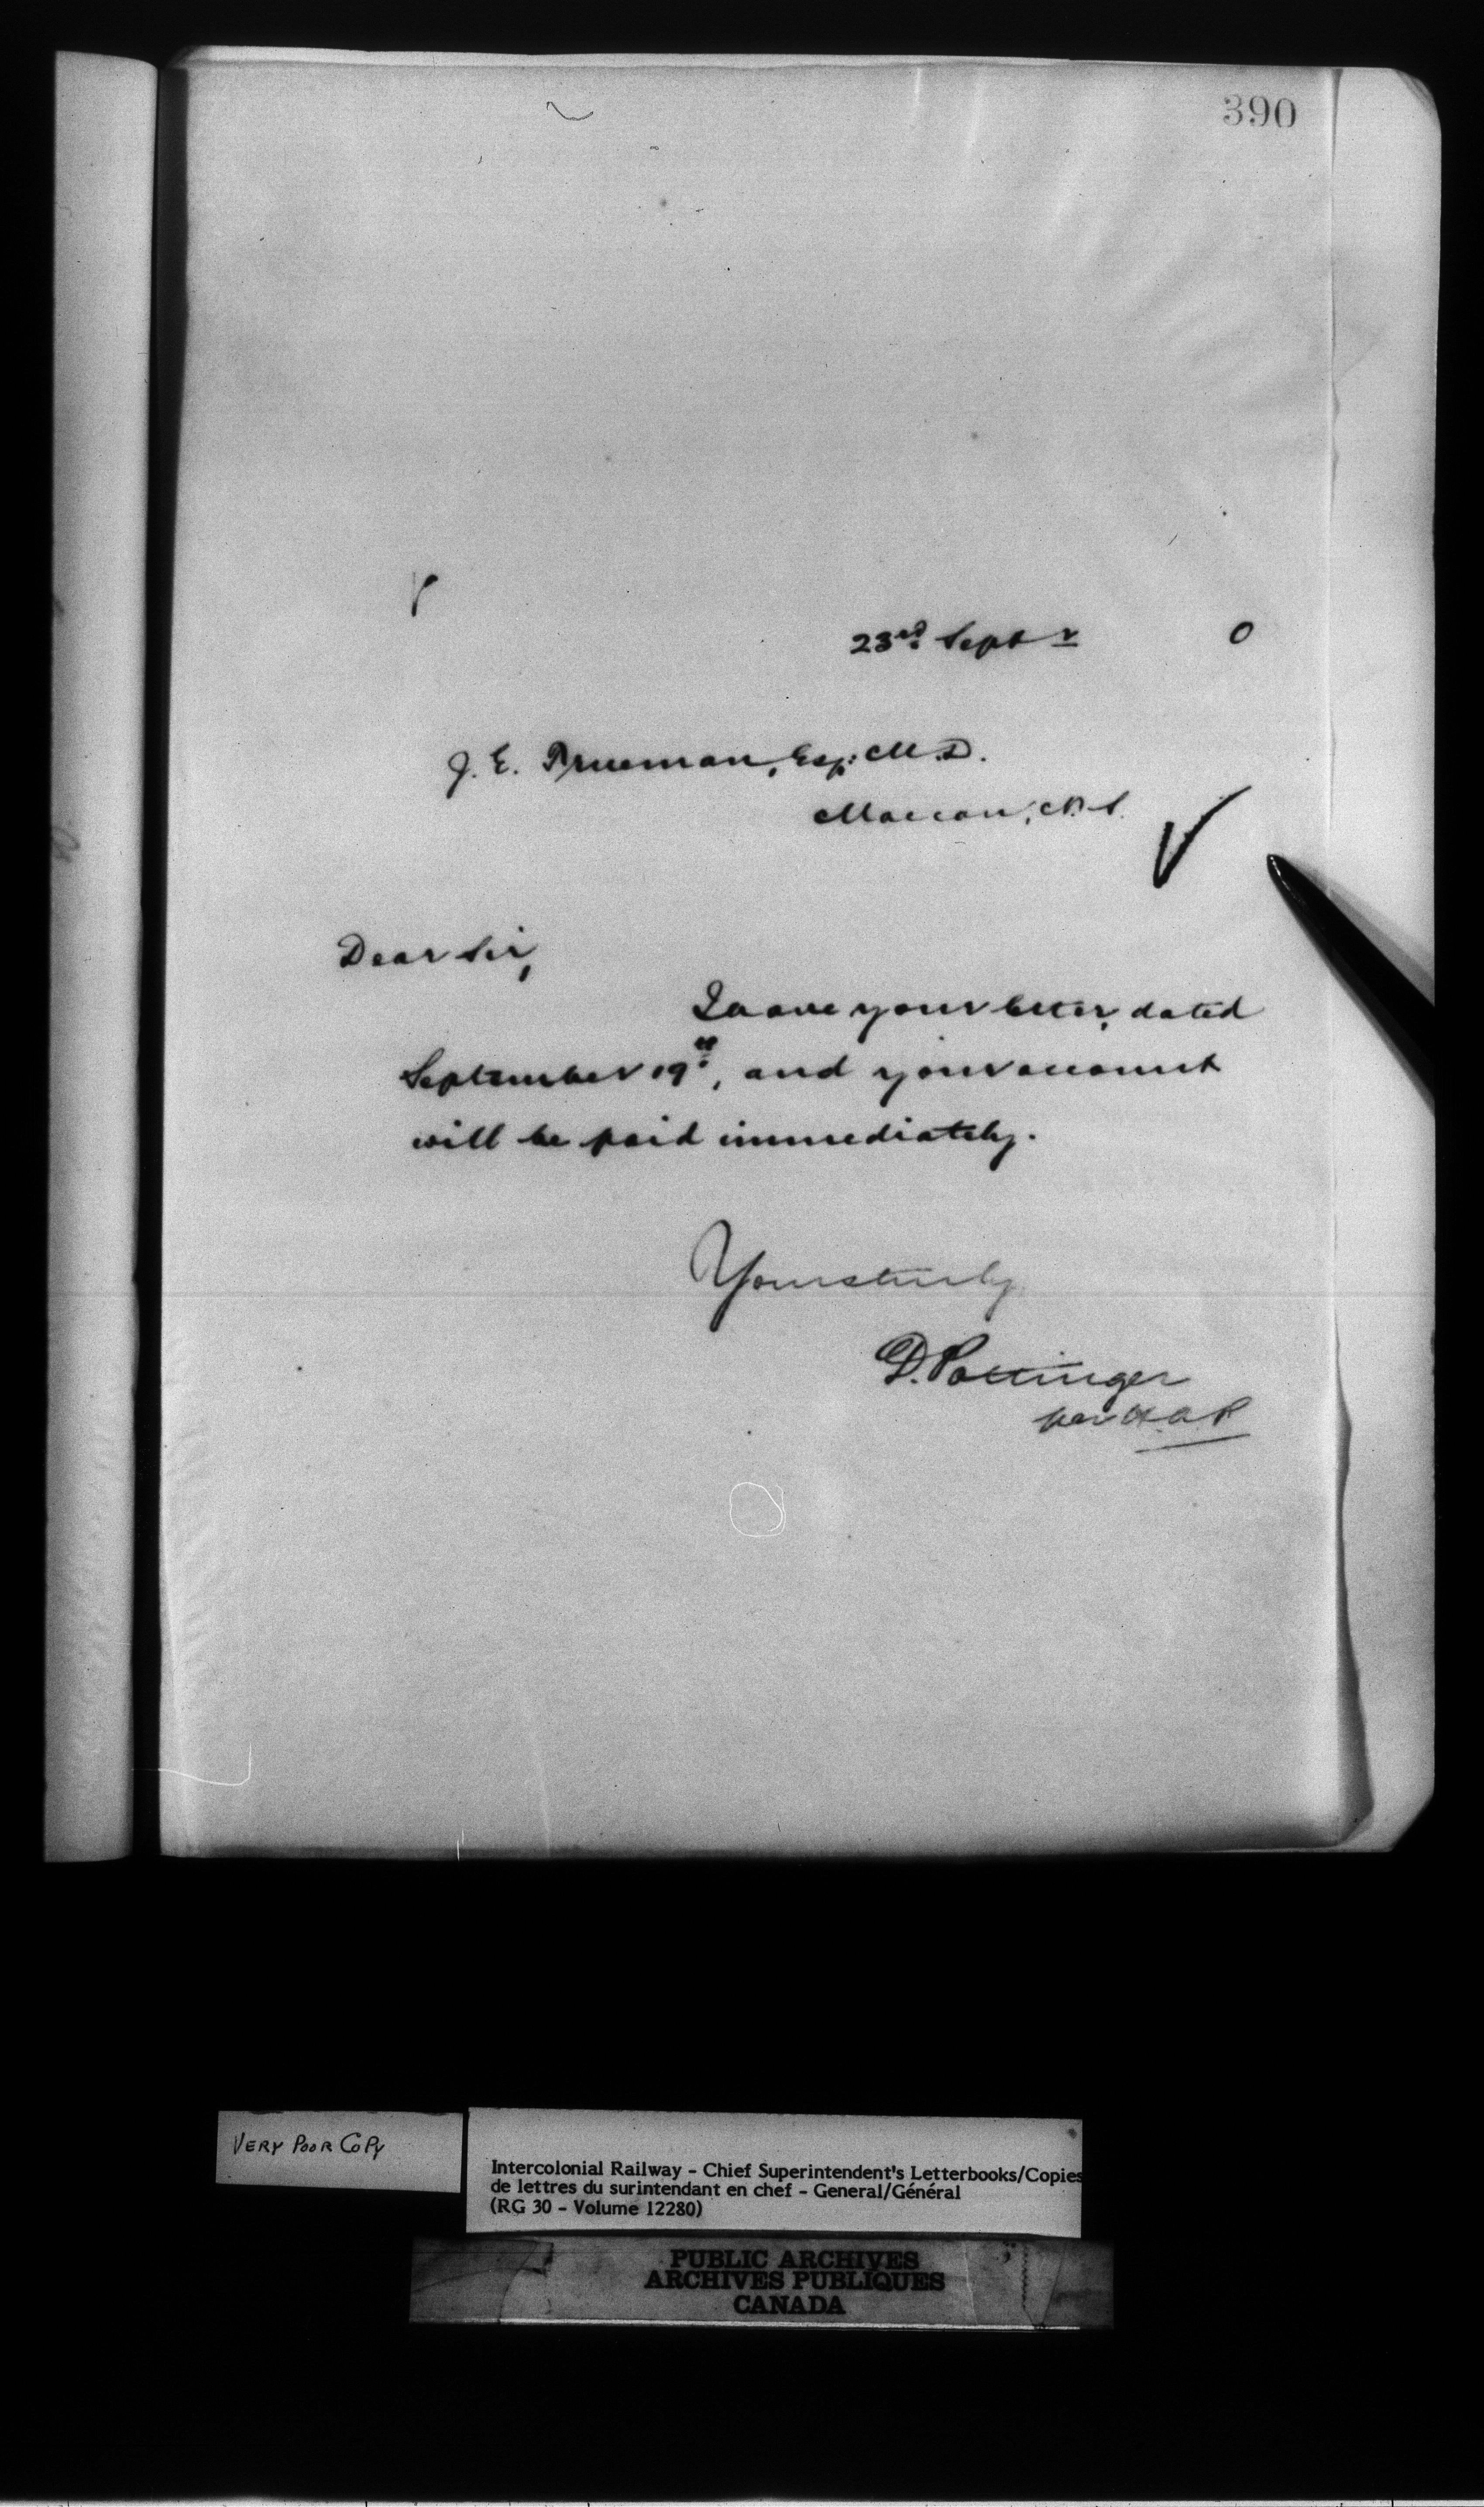 390
23rd Septr 0
J. E. Trueman, Esq: M.D.
Maccan, N.S.
Dear Sir,
I have your letter, dated
September 19th, and your account
will be paid immediately.
Yours truly
D. Pottinger
per H.A.P
VERY POOR COPY
Intercolonial Railway - Chief Superintendent's Letterbooks/Copies
de lettres du surintendant en chef - General/Général
(RG 30 - Volume 12280)
PUBLIC ARCHIVES
ARCHIVES PUBLIQUES
CANADA